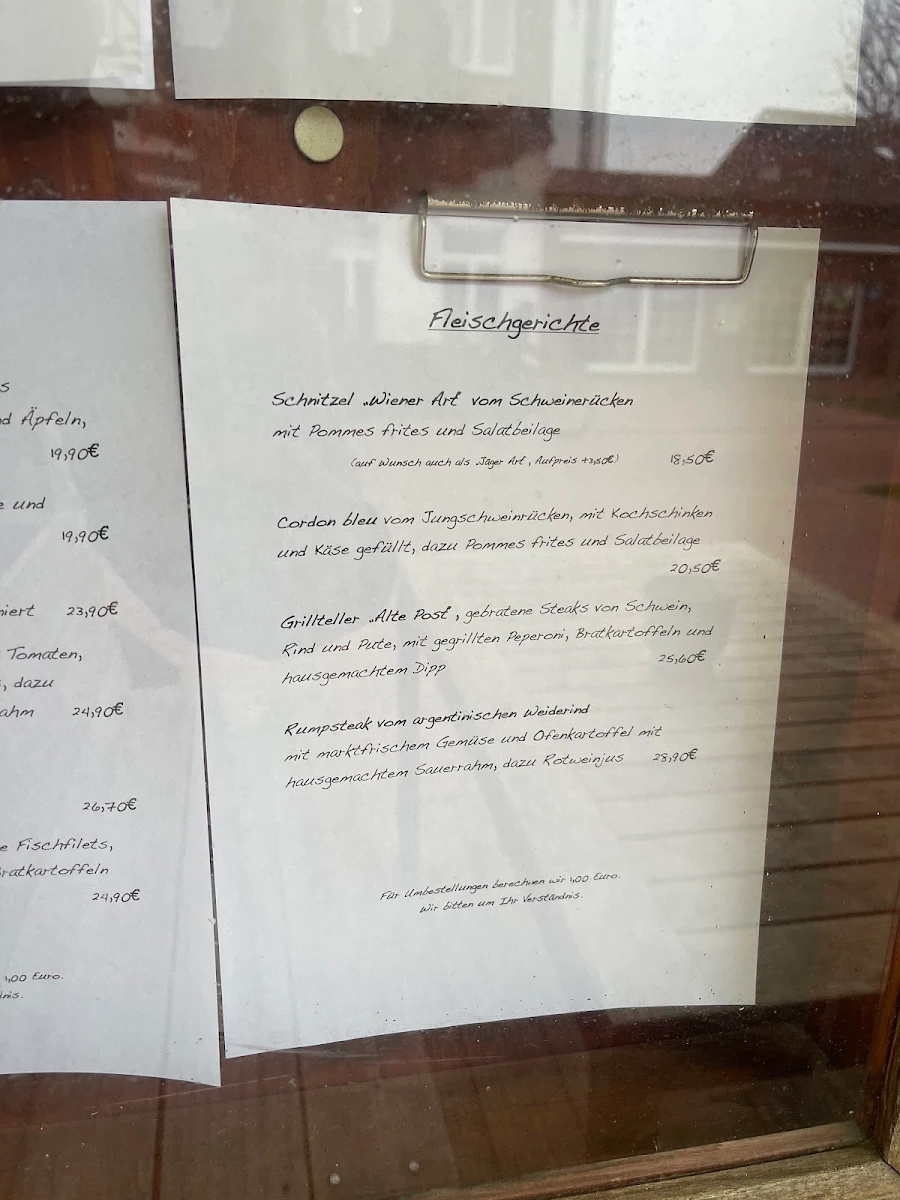 s
d Äpfeln,
19,90€
e und
19,90€
niert 23,90€
Tomaten,
, dazu
ahm 24,90€
26,70€
e Fischfilets,
Bratkartoffeln
24,90€
1,00 Euro.
dnis.
Fleischgerichte
Schnitzel „Wiener Art“ vom Schweinerücken
mit Pommes frites und Salatbeilage
(auf Wunsch auch als „Jäger Art“, Aufpreis +3,50€) 18,50€
Cordon bleu vom Jungschweinrücken, mit Kochschinken
und Käse gefüllt, dazu Pommes frites und Salatbeilage
20,50€
Grillteller „Alte Post“, gebratene Steaks von Schwein,
Rind und Pute, mit gegrillten Peperoni, Bratkartoffeln und
hausgemachtem Dipp 25,60€
Rumpsteak vom argentinischen Weiderind
mit marktfrischem Gemüse und Ofenkartoffel mit
hausgemachtem Sauerrahm, dazu Rotweinjus 28,90€
Für Umbestellungen berechnen wir 1,00 Euro.
Wir bitten um Ihr Verständnis.